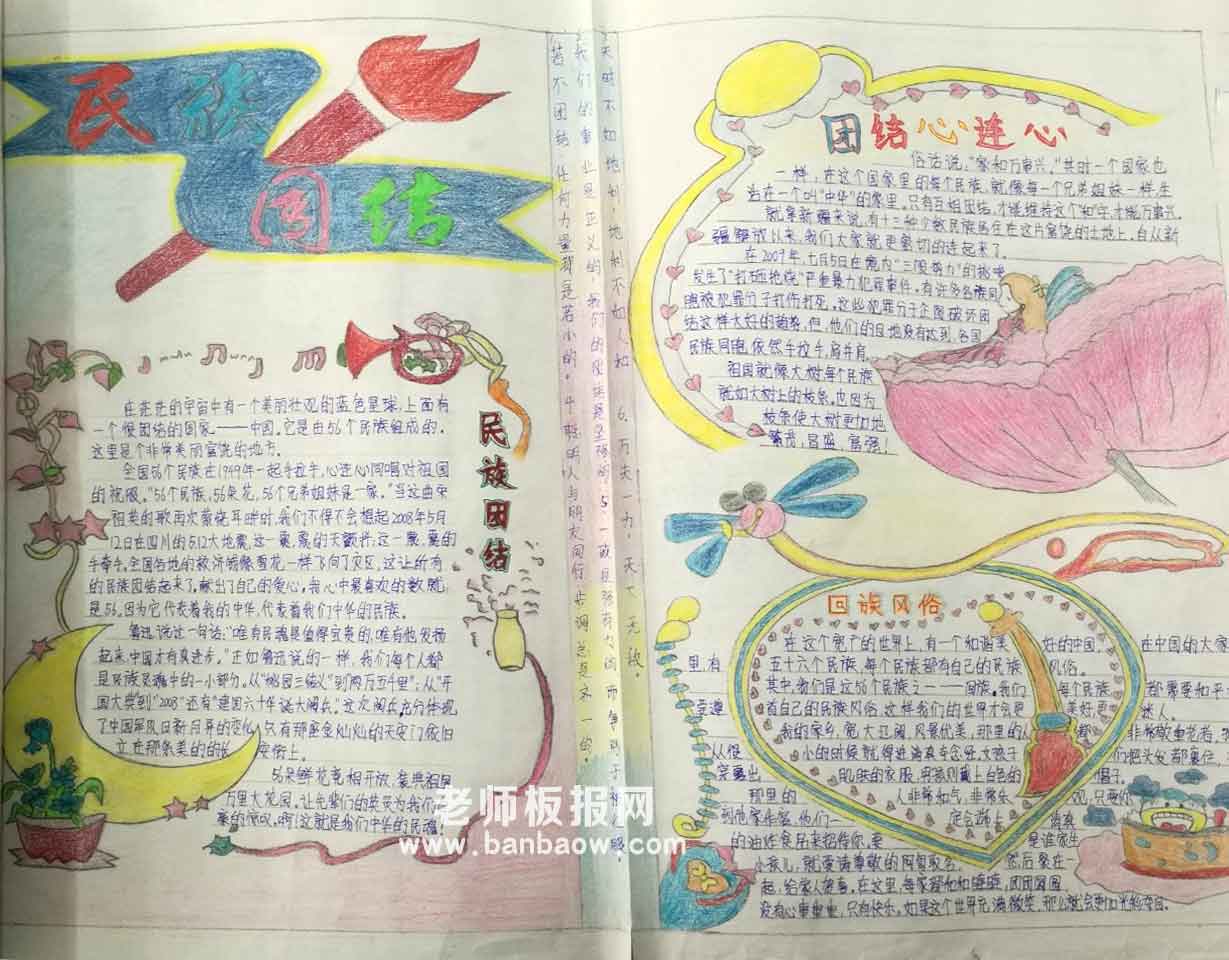 民族
团结
民族团结
在茫茫的宇宙中有一个美丽壮观的蓝色星球,上面有
一个很团结的国家——中国,它是由56个民族组成的,
这里是个非常美丽富饶的地方。
全国56个民族在1949年一起手拉手,心连心同唱对祖国
的祝服。"56个民族,56朵花,56个兄弟姐妹是一家。"当这曲宋
祖英的歌再次萦绕耳畔时,我们不得不会想起2008年5月
12日在四川的5.12大地震,这一震,震的天翻
手牵手,全国各地的救济钱像雪花一样飞向了灾区,这让所有
的民族团结起来了,献出了自己的爱心。我心中最喜欢的数就
是56,因为它代表着我的中华,代表着我们中华的民族。
鲁迅说过一句话:"唯有民魂是值得宝贵的,唯有他发扬
起来,中国才有真进步。"正如鲁迅说的一样,我们每个人都
是民族灵魂中的一小部分。从"桃园三结义"到"两万五千里";从"开
国大典"到"2008"还有"建国六十年诞大阅兵",这次阅兵,充分体现
了中国军队日新月异的变化,只有那座金灿灿的天安门依旧
立在那条美的的长安街上。
56朵鲜花竞相开放,装典祖国
万里大花园。让先辈们的英灵为我们
的民魂!
天时不如地利,地利不如人和 6.万夫一力,天下无敌。
我们的事业是正义的,我们的团结是坚强的 5.一致是强有力的,而争
若不团结,任何力量都是弱小的。4.聪明人与朋友同行,步调总是齐一的。
团结心连心
俗话说,"家和万事兴。"其时一个国家也
一样,在这个国家里的每个民族,就像每一个兄弟姐妹一样,生
活在一个叫"中华"的家里。只有互相团结,才能维持这个"和"字,才能万事兴。
就拿新疆来说,有十三种少数民族居住在这片富饶的土地上。自从新
疆解放以来,我们大家就更紧切的连起来了。
在2009年,七月5日在境内"三股势力"的挑唆
发生了"打砸抢烧"严重暴力犯罪事件。有许多各族同
胞被犯罪分子打伤打死。这些犯罪分子企图破坏团
结这样大好的局势,但,他们的目地没有达到,各国
民族同胞依然手拉手,肩并肩。
祖国就像大树每个民族
就如大树上的枝条,也因为
枝条使大树更加地
繁茂,昌盛,富强!
回族风俗
在这个宽广的世界上,有一个和谐美好的中国,在中国的大家
里有五十六个民族,每个民族都有自己的民族风俗。
其中,我们是这56个民族之一——回族。我们每个民族都需要和平
幸遵首自己的民族风俗,这样我们的世界才会更美好,更迷人。
我的家乡,宽大辽阔,风景优美,那里的人
从很小的时候就得进清真寺念经,女孩子们把头发都裹住,
穿露出肌肤的衣服,男孩则戴上白色的帽子。
那里的人非常和气,非常乐观,只要你
到他家作客,他们一定会端上清真
的油炸食品来招待你,要是谁家生
小孩儿,就要请尊敬的阿訇取名,然后聚在一
起,给家人贺喜。在这里,每家都和和睦睦,团团圆圆
没有心事重重,只有快乐。如果这个世界充满微笑,那么就会更加光彩夺目。
老师板报网
www.banbaow.com